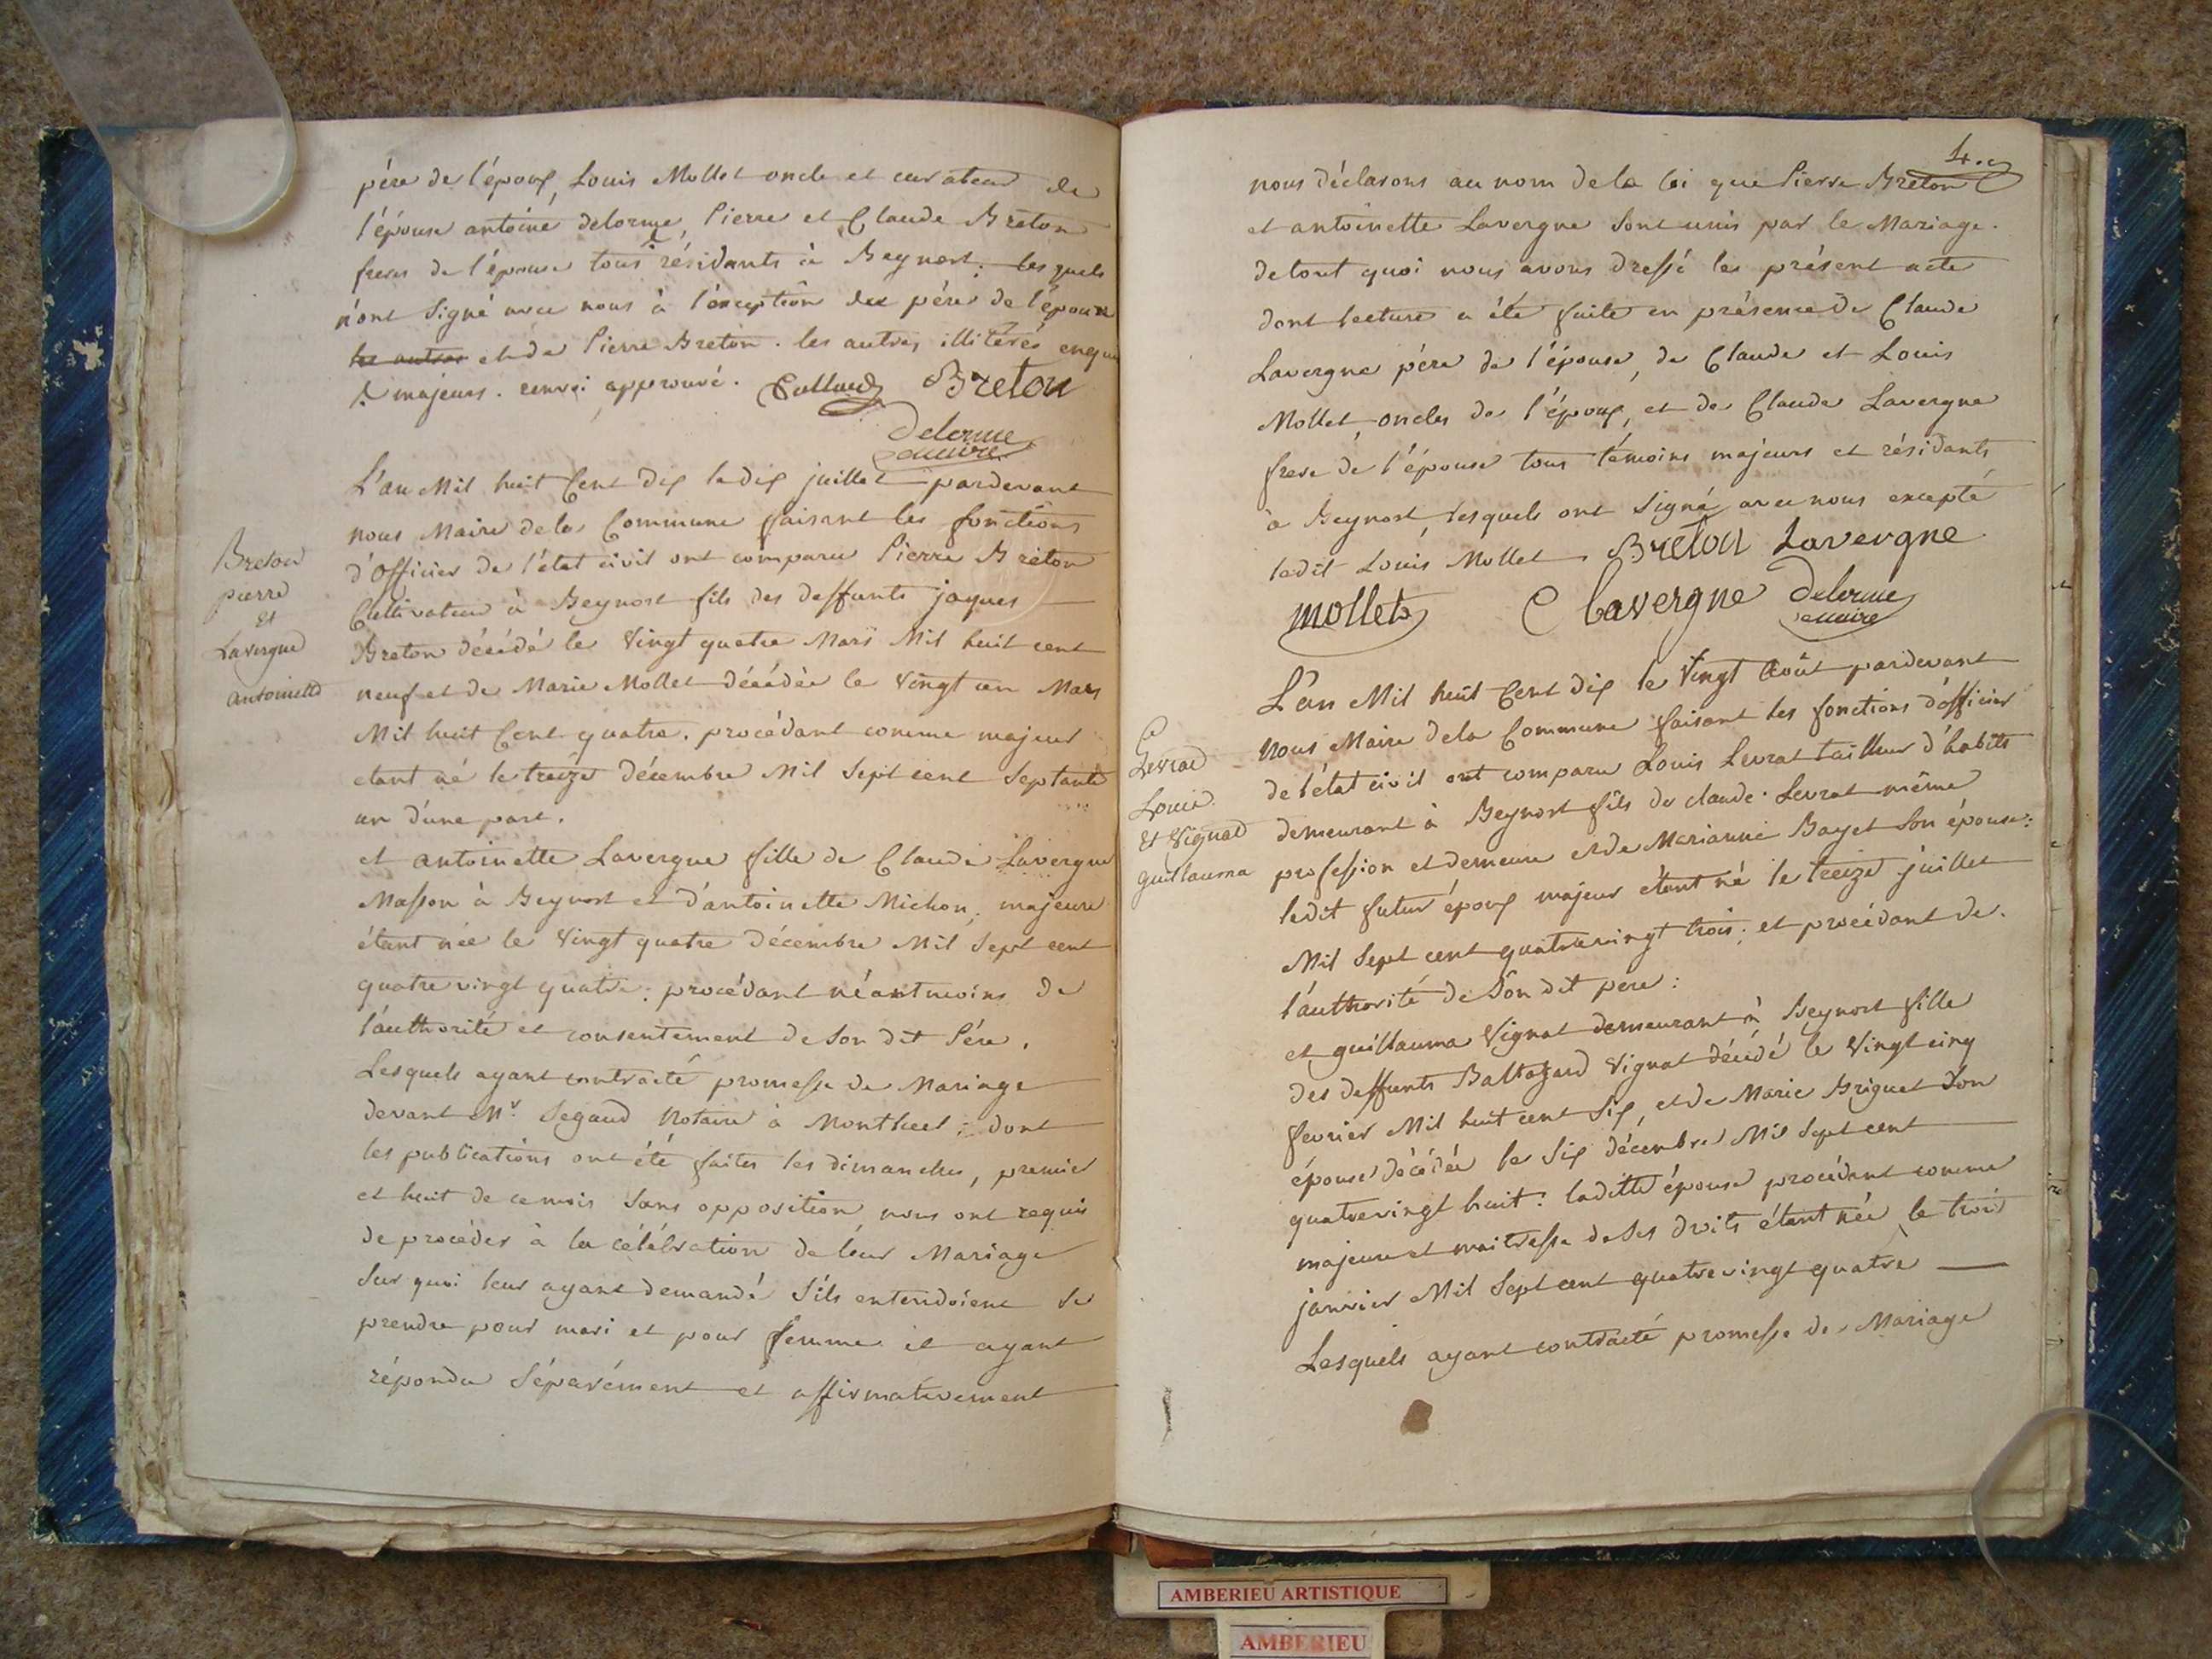 père de l'époux, Louis Mollet oncle et curateur de
l'épouse antoine delorme, Pierre et Claude Breton
freres de l'épouse tous résidants à Beynost; lesquels
n'ont signé avec nous à l'exception du père de l'époux
les autres et de Pierre Breton. les autres illitérés
majeurs. renvoi approuvé. Breton
Delorme
maire
L'an Mil huit Cent dix le dix juillet pardevant
nous Maire de la Commune faisant les fonctions
d'Officier de l'état civil ont comparu Pierre Breton
Cultivateur à Beynost fils des deffunts jaques
Breton décédé le Vingt quatre Mars Mil huit cent
neuf et de Marie Mollet décédée le Vingt un Mars
Mil huit Cent quatre. procédant comme majeur
etant né le treize décembre Mil Sept cent Septante
un d'une part.
et antoinette Lavergne fille de Claude Lavergne
Masson à Beynost et d'antoinette Michon, majeure
étant née le Vingt quatre décembre Mil Sept cent
quatre vingt quatre: procédant néantmoins de
l'authorité et consentement de Son dit Père.
Lesquels ayant contracté promesse de Mariage
devant Mr. Segaud Notaire à Montluel; dont
les publications ont été faites les dimanches, premier
et huit de ce mois Sans opposition, nous ont requis
de procéder à la célébration de leur Mariage
Sur quoi leur ayant demandé S'ils entendoient se
prendre pour mari et pour femme et ayant
répondu Séparément et affirmativement
Breton
pierre
et
Lavergne
antoinette
4.e
nous déclarons au nom de la loi que Pierre Breton
et antoinette Lavergne Sont unis par le Mariage.
de tout quoi nous avons dressé le présent acte
dont lecture a été faite en présence de Claude
Lavergne père de l'épouse, de Claude et Louis
Mollet, oncles de l'époux, et de Claude Lavergne
frere de l'épouse tous témoins majeurs et résidants
à Beynost, lesquels ont Signé avec nous excepté
ledit Louis Mollet. Breton Lavergne
mollet C Lavergne Delorme
maire
L'an Mil huit Cent dix le Vingt Août pardevant
Nous Maire de la Commune faisant les fonctions d'officier
de l'état civil ont comparu Louis Levrat tailleur d'habits
demeurant à Beynost fils de claude Levrat même
profession et demeure et de Marianne Bayet Son épouse:
ledit futur époux majeur étant né le treize juillet
Mil Sept cent quatrevingt trois; et procédant de
l'authorité de Son dit pere:
et guillauma Vignat demeurant à Beynost fille
des deffunts Baltazard Vignat décédé le Vingt cinq
fevrier Mil huit cent Six, et de Marie Briguet Son
épouse décédée le Six décembre Mil Sept cent
quatrevingt huit: laditte épouse procédant comme
majeure et maitresse de Ses droits étant née le trois
janvier Mil Sept cent quatrevingt quatre
Lesquels ayant contracté promesse de Mariage
Levrat
Louis
Et Vignat
guillauma
AMBERIEU ARTISTIQUE
AMBERIEU